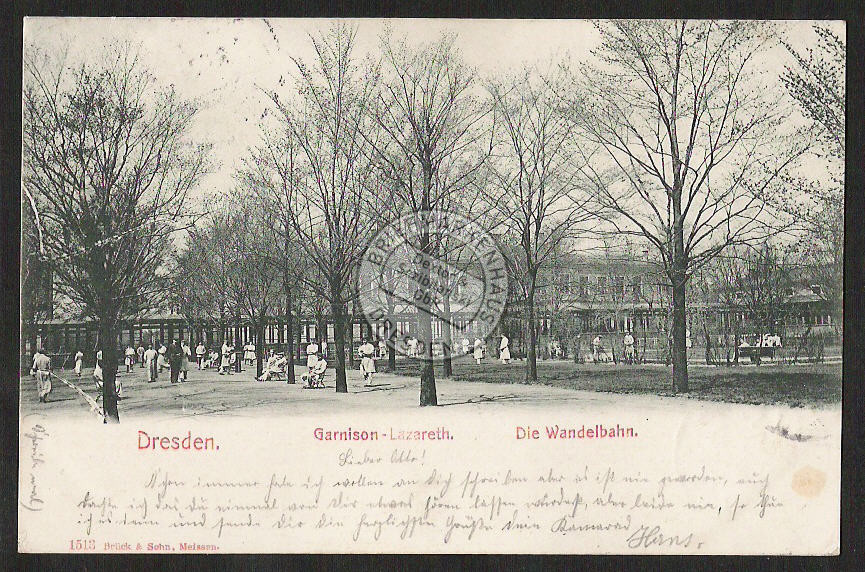 Dresden. Garnison-Lazareth. Die Wandelbahn.
Lieber Otto!
Schon immer habe ich wollen an Dich schreiben aber es ist nie geworden, auch
dachte ich das Du einmal von Dir etwas hören lassen würdest, aber leider nie, so thue
ich es denn und sende Dir die herzlichsten Grüße dein Kamerad
Hans.
1513 Brück & Sohn, Meissen.